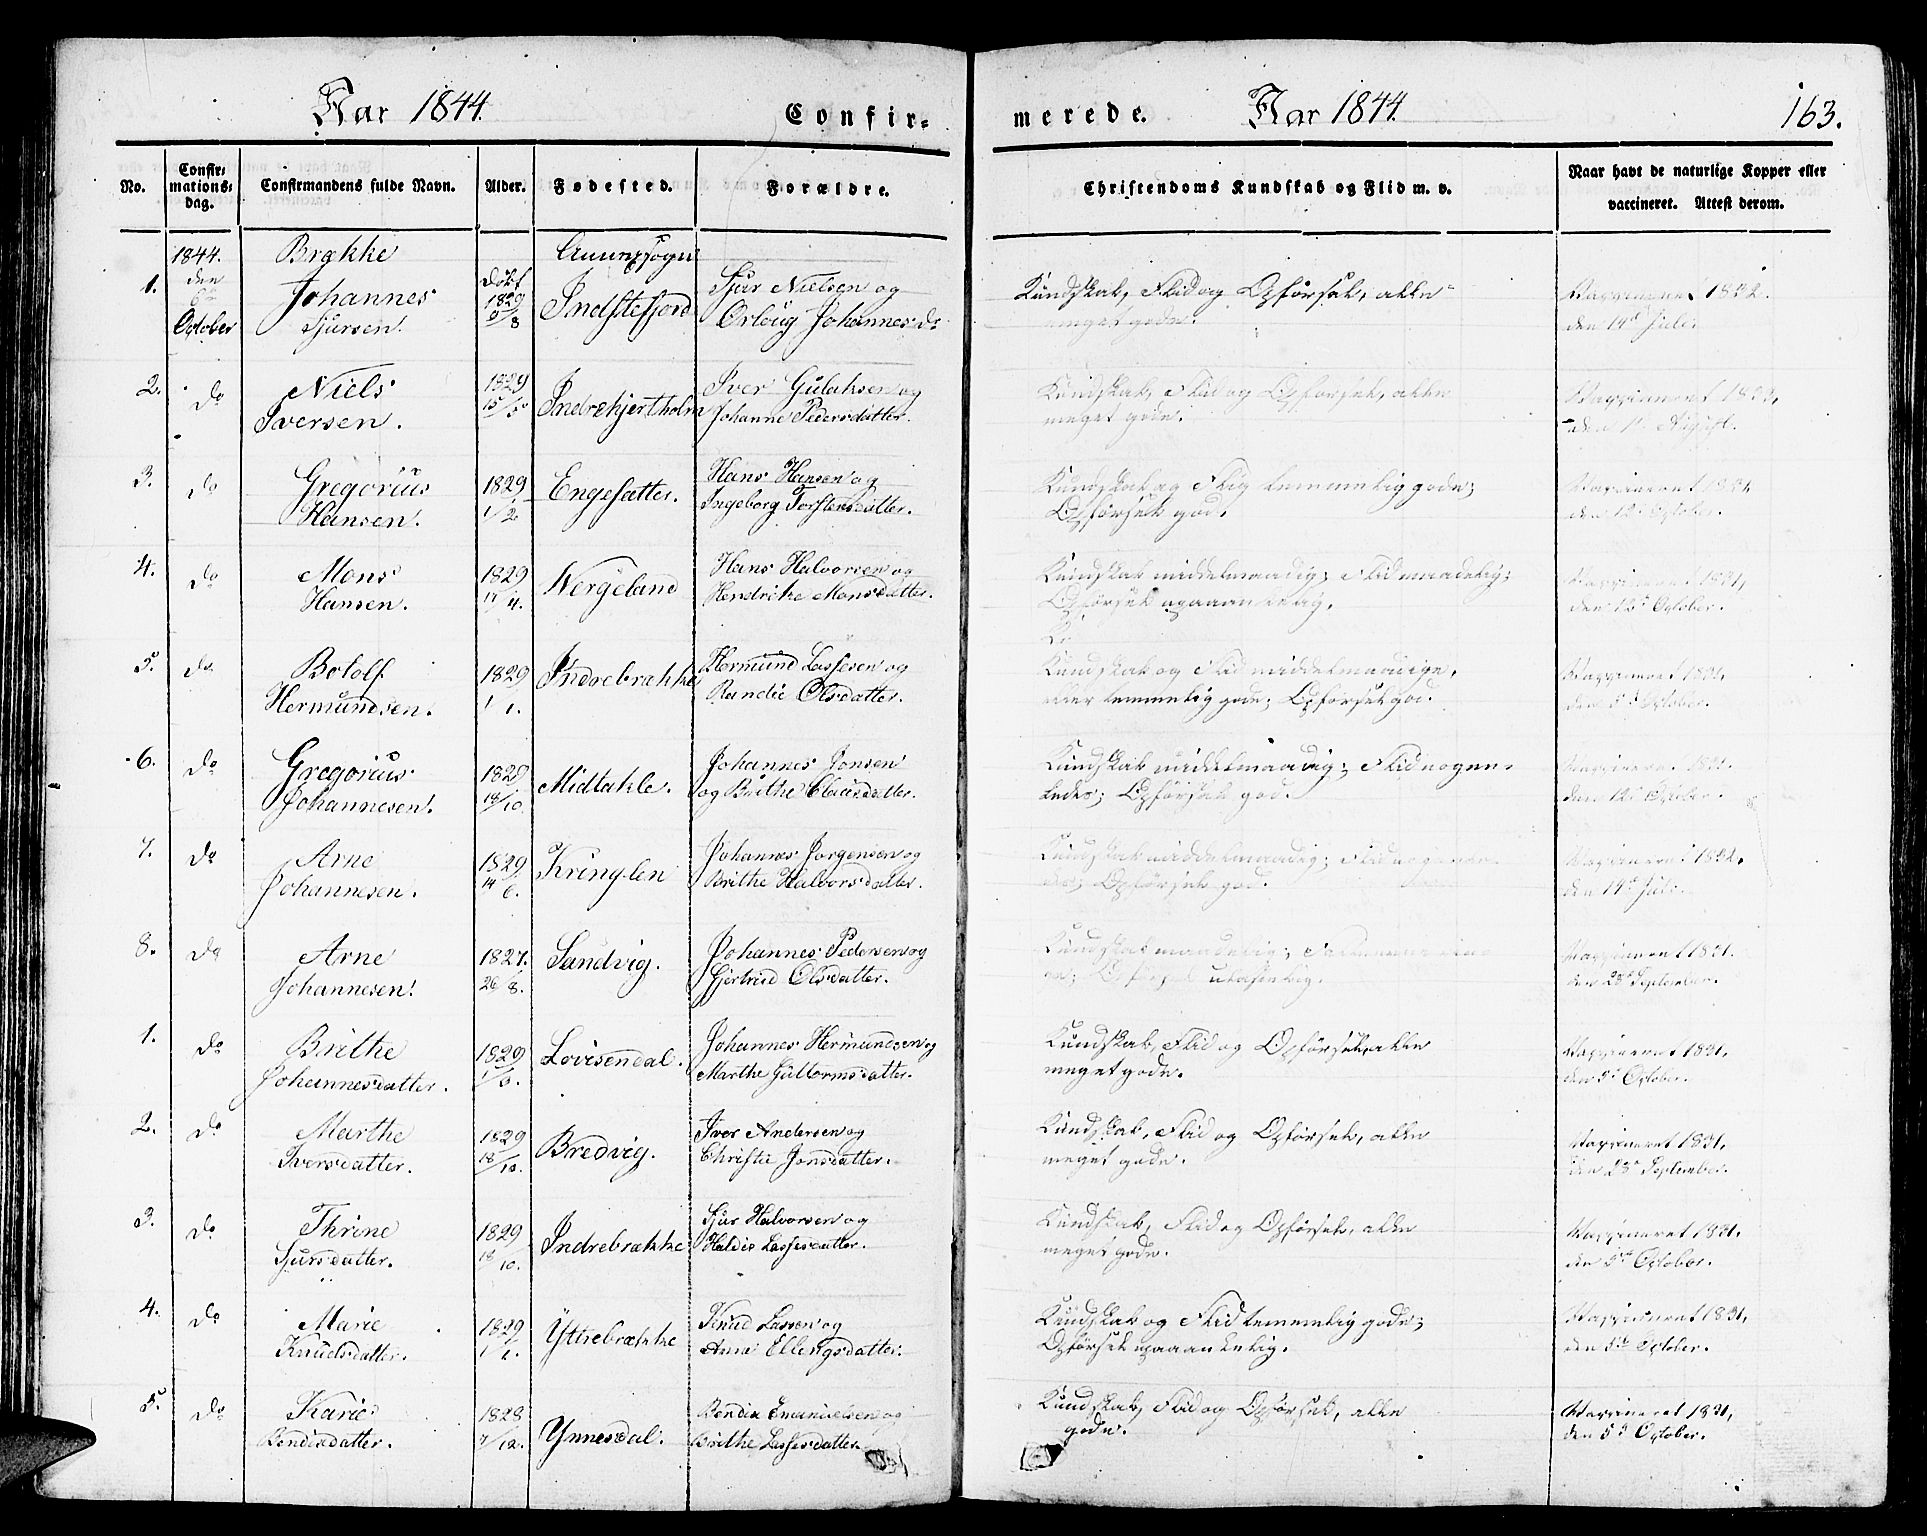 Aar 1844. Confir-
merede. Aar 1844. 163.
No. Confirmationsdag. Confirmandens fulde Navn. Alder. Fødested. Forældre. Christendoms Kundskab og Flid m. v. Naar havt de naturlige Kopper eller vaccineret. Attest derom.
1844. Brække Annexsogn
1. den 6te October Johannes Sjursen. Døbt 1829 Indstefjord Sjur Nielsen og Orloug Johannesdr Kundskab, Flid og Opførsel, alle meget gode. Vaccineret 1832. den 14de Juli.
2. do Niels Iversen. 1829 15/5 Indrehjertholm Iver Gulaksen og Johanne Pedersdatter. Kundskab, Flid og Opførsel, alle meget gode. Vaccineret den August.
3. do Gregorius Hansen. 1829 1/2 Engesætter. Hans Hansen og Ingeborg Torstensdatter. Kundskab og Flid temmelig gode; Opførsel god. Vaccineret 1831 den 12te October.
4. do Mons Hansen. 1829 Nergeland Hans Halvorsen og Hendrikke Monsdatter. Kundskab middelmaadig; Flid maadelig; Opførsel upaaankelig. Vaccineret 1831, den 12te October.
5. do Botolf Hermundsen. 1829 1/1. Indrebrække Hermund Lassesen og Randie Olsdatter. Kundskab og Flid middelmaadige, eller temmelig gode; Opførsel god. Vaccineret 1831. den 5te October.
6. do Gregorius Johannesen. 1829 18/10. Midtakle. Johannes Jonsen og Brithe Clausdatter. Kundskab middelmaadig; Flid nogenledes; Opførsel god. Vaccineret 1831. den 12te October.
7. do Arne Johannesen. 1829 14/6. Kringlen Johannes Jørgensen og Brithe Halvorsdatter. Kundskab middelmaadig; Flid Opførsel god. Vaccineret 1832. den 14de Juli.
8. do Arne Johannesen. 1827. 26/8. Sandvig. Johannes Pedersen og Gjertrud Olsdatter. Kundskab maadelig; Vaccineret 1831. den 28de September.
1. do Brithe Johannesdatter. 1829 Lovisendal. Johannes Hermundsen og Marthe Guttormsdatter. Kundskab, Flid og Opførsel, alle meget gode. Vaccineret 1831, den 5te October.
2. do Marthe Iversdatter. 1829 18/10. Bredvig. Iver Andersen og Christie Jonsdatter. Kundskab, Flid og Opførsel, alle meget gode. Vaccineret 1831, den 28de September.
3. do Thrine Sjursdatter. 1829 18/10. Indrebrække Sjur Halvorsen og Haldis Lassesdatter. Kundskab, Flid og Opførsel, alle meget gode. Vaccineret 1831, den 5te October.
4. do Marie Knudsdatter. 1829 Yttrebrække Knud Lassen og Anne Ellengsdatter. Kundskab og Flid temmelig gode; Opførsel upaaankelig. Vaccineret 1831, den 5te October.
5. do Karie Bendixdatter. 1828 7/12. Ynnesdal. Bendix Emanuelsen og Brithe Lassesdatter. Kundskab, Flid og Opførsel, alle gode. Vaccineret 1831, den 5te October.